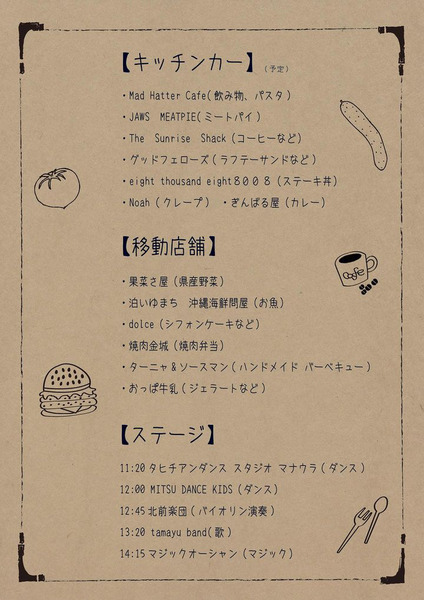 【キッチンカー】(予定)
・Mad Hatter Cafe(飲み物、パスタ)
・JAWS MEATPIE(ミートパイ)
・The Sunrise Shack(コーヒーなど)
・グッドフェローズ(ラフテーサンドなど)
・eight thousand eight８００８(ステーキ丼)
・Noah(クレープ) ・ぎんばる屋(カレー)
【移動店舗】
・果菜さ屋(県産野菜)
・泊いゆまち 沖縄海鮮問屋(お魚)
・dolce(シフォンケーキなど)
・焼肉金城(焼肉弁当)
・ターニャ&ソースマン(ハンドメイド バーベキュー)
・おっぱ牛乳(ジェラートなど)
【ステージ】
11:20 タヒチアンダンス スタジオ マナウラ(ダンス)
12:00 MITSU DANCE KIDS(ダンス)
12:45 北前楽団(バイオリン演奏)
13:20 tamayu band(歌)
14:15 マジックオーシャン(マジック)
cafe